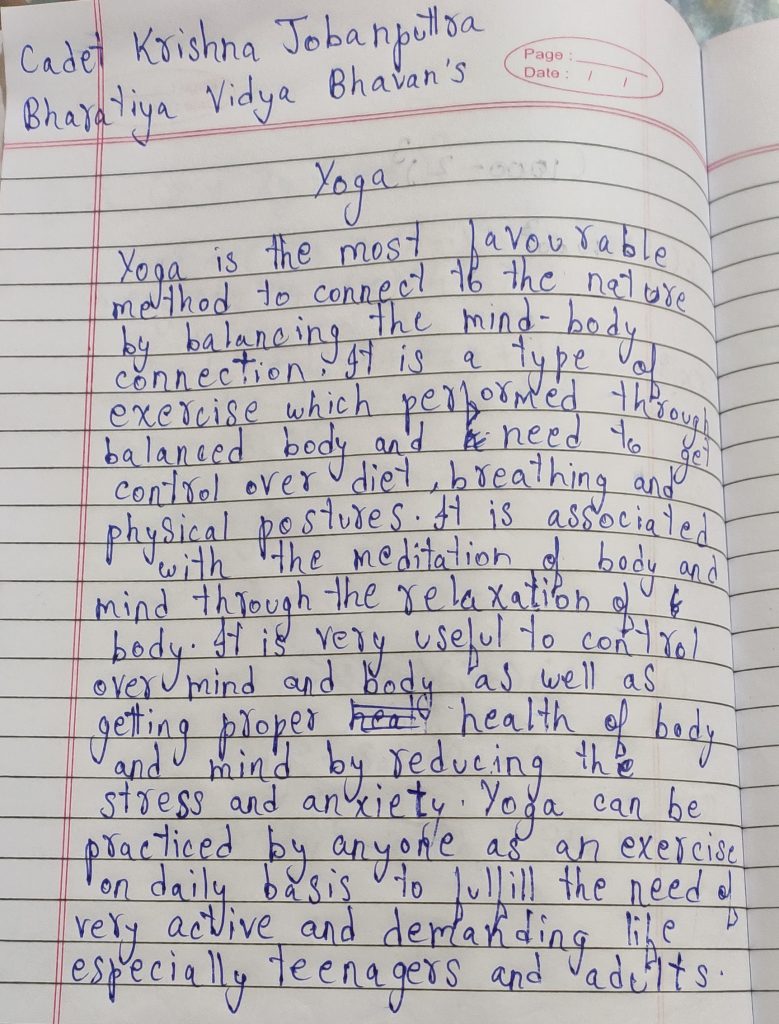 Cadet Krishna Jobanputtra
Bharatiya Vidya Bhavan's
Page :
Date : / /
Yoga
Yoga is the most favourable
method to connect to the nature
by balancing the mind-body
connection. It is a type of
exercise which performed through
balanced body and need to get
control over diet, breathing and
physical postures. It is associated
with the meditation of body and
mind through the relaxation of
body. It is very useful to control
over mind and body as well as
getting proper health of body
and mind by reducing the
stress and anxiety. Yoga can be
practiced by anyone as an exercise
on daily basis to fulfill the need of
very active and demanding life
especially teenagers and adults.